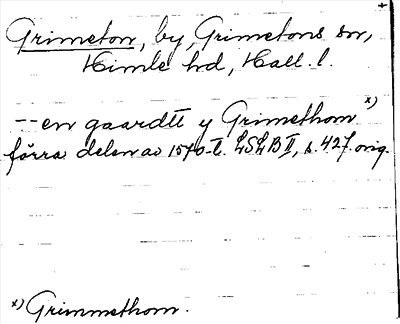 Grimeton, by, Grimetons sn,
Himle hd, Hall. l.
-- en gaardtt y Grimethom x)
förra delen av 1570-t. LSLB II, s. 427. orig.
x) Grimmethom.